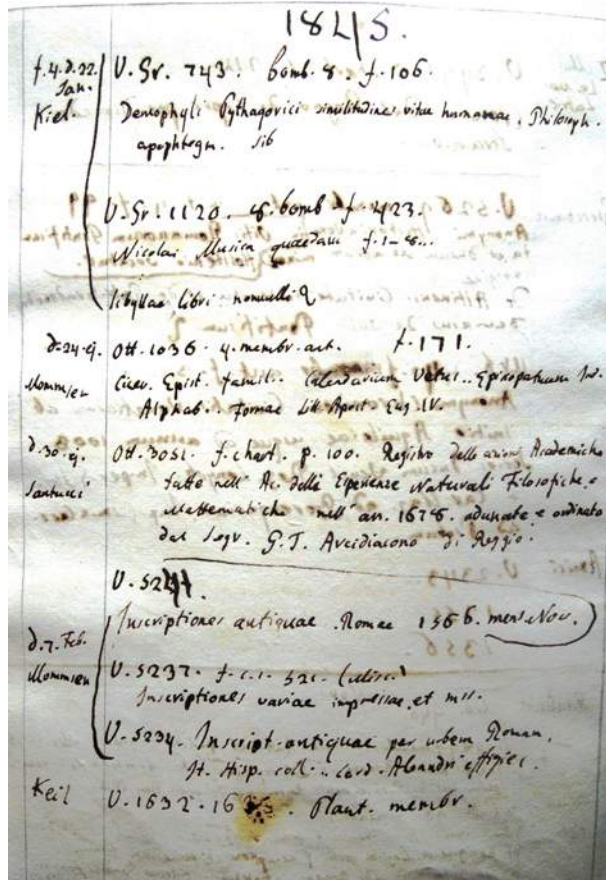 1845.
f.4.d.22. Jan. Kiel.
V. Gr. 743. bomb. 8. f. 106.
Demophyli Pythagorici similitudines vitae humanae. Philosoph.
apophtegm. Sib
V. Gr. 1120. 8. bomb. f. 423.
Nicolai Musica quaedam f. 1-8...
Sibyllae libri nonnulli
d. 24. ej. Mommsen
Ott. 1036. 4. membr. ant. f. 171.
Cicer. Epist. famil.. Calendarium Vetus.. Episcopatuum Ind.
Alphab.. Formae Litt. Apost. Eug. IV.
d. 30. ej. Santucci
Ott. 3051. f. chart. p. 100. Registro delle azioni Academiche
fatte nell' Ac. delle Esperienze Naturali Filosofiche, e
Mattematiche nell' an. 1678. adunate e ordinate
dal Segr. G. T. Arcidiacono di Reggio.
V. 5241.
Inscriptiones antiquae. Romae 1566. mens. Nov.
d. 7. Feb. Mommsen
V. 5237. f. c. s. 526.
Inscriptiones variae impressae, et mss.
V. 5234. Inscript. antiquae per urbem Romam,
It. Hisp. coll.. Card. Alexandri effigies.
Keil
V. 1632. Plaut. membr.